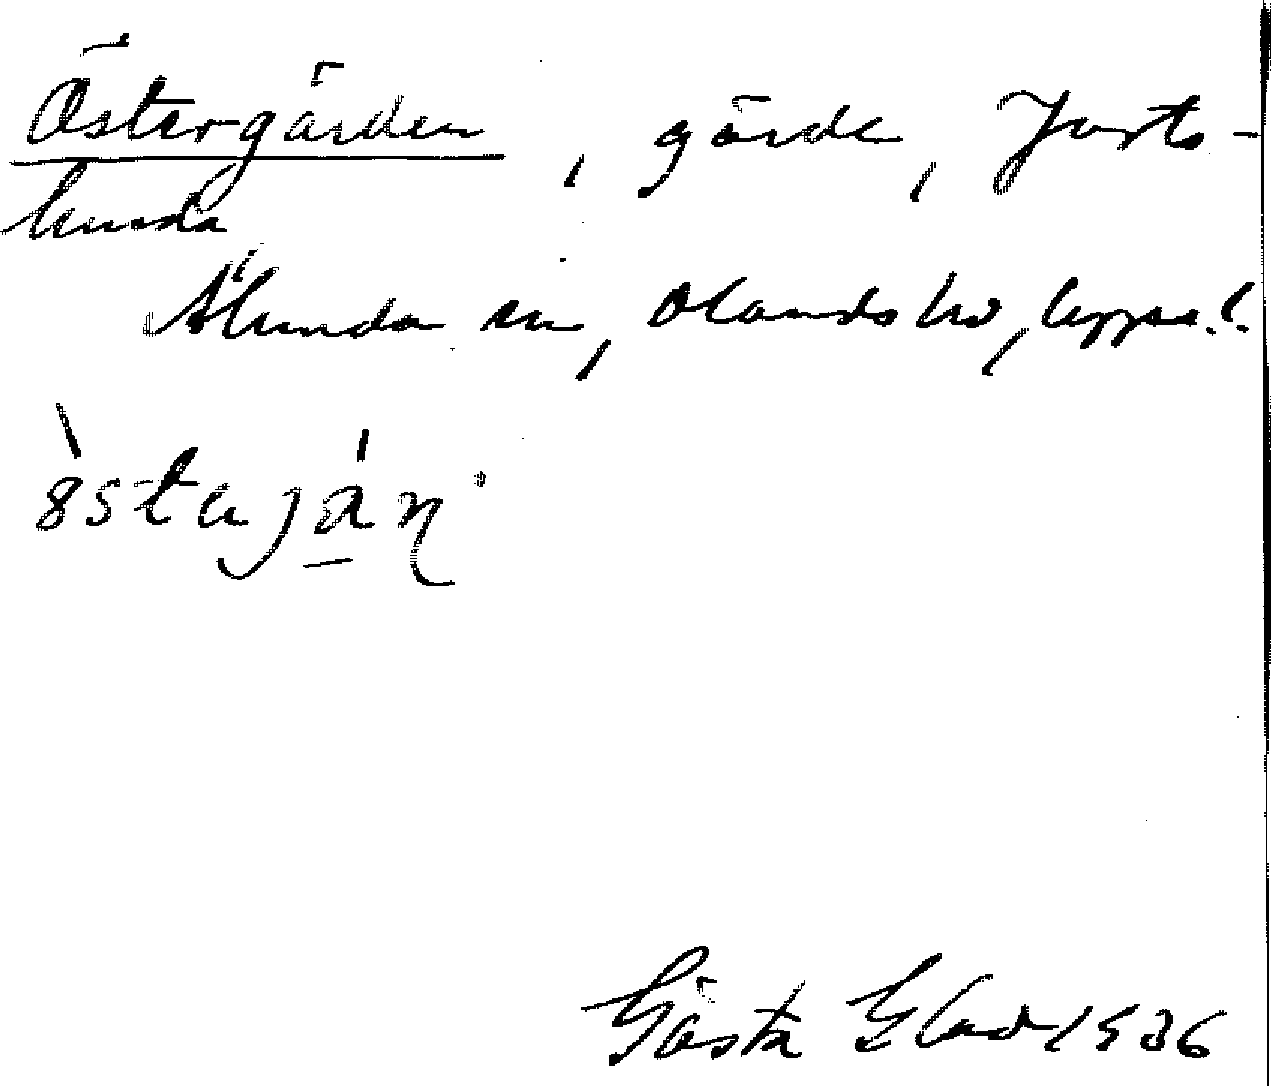 Östergärden, gärde, Torts-
lunda
Alunda sn, Olands hd, Uppsa.l.
östajän
Gösta Elad 1936